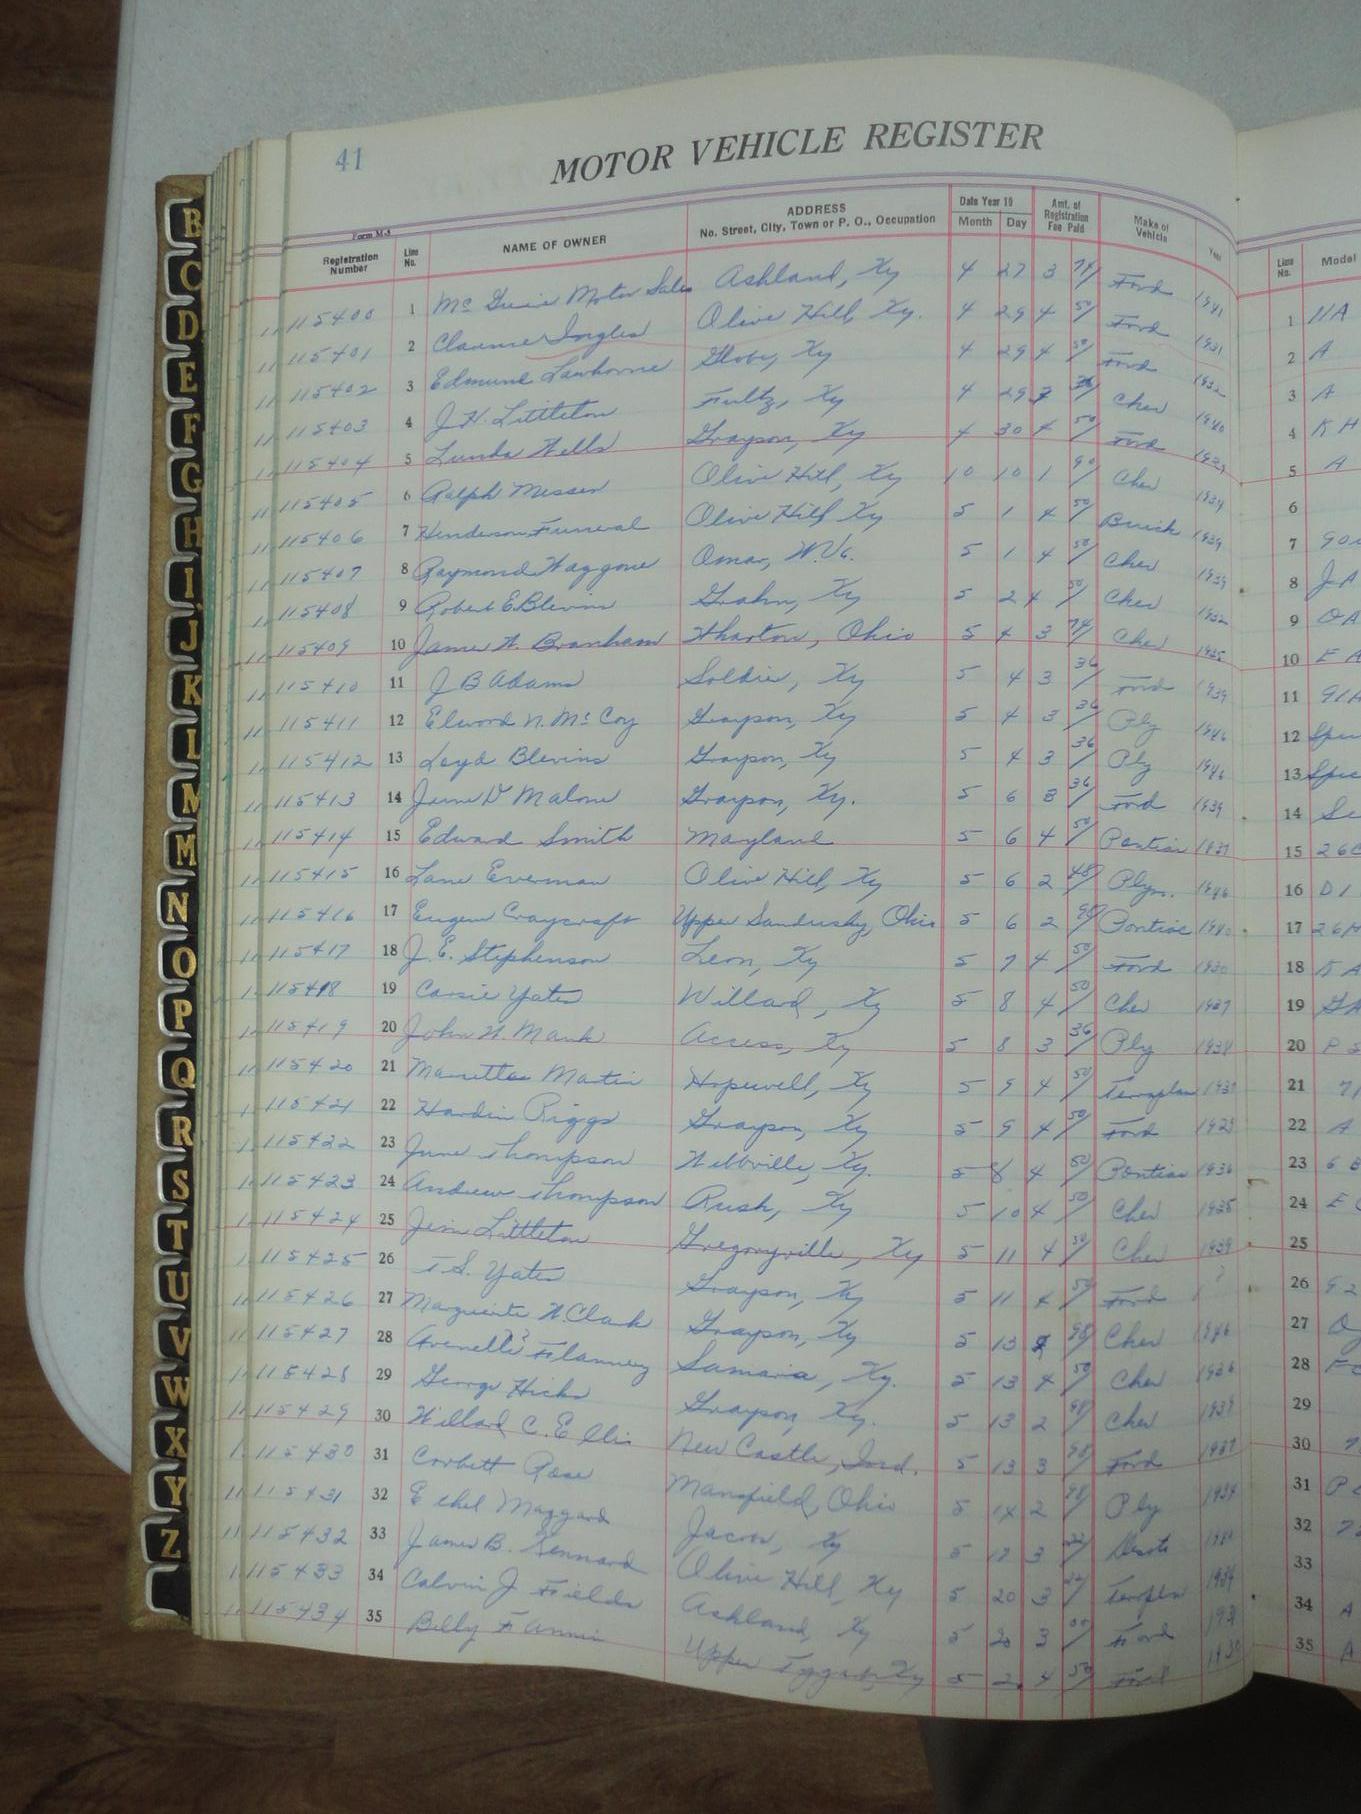 41
MOTOR VEHICLE REGISTER
Form M-5
Registration Number Line No. NAME OF OWNER ADDRESS No. Street, City, Town or P. O., Occupation Date Year 19 Month Day Amt. of Registration Fee Paid Make of Vehicle Year Line No. Model
115400 1 Mc Guire Motor Sales Ashland, Ky 4 27 3 74 Ford 1941 1 11A
115401 2 Clarence Ingles Olive Hill, Ky. 4 29 4 50 Ford 1931 2 A
115402 3 Edmund Lawhorne Globe, Ky 4 29 4 50 Ford 1932 3 A
115403 4 J. H. Littleton Fultz, Ky 4 29 Chev 1940 4 K H
115404 5 Lunda Wells Grayson, Ky 4 30 4 50 Ford 1929 5 A
115405 6 Ralph Messer Olive Hill, Ky 10 10 1 90 Chev 1934 6
115406 7 Henderson Funeral Olive Hill Ky 5 1 4 50 Buick 1939 7
115407 8 Raymond Waggoner Omar, W. Va. 5 1 4 50 Chev 1939 8 J A
115408 9 Robert E Blevins Grahn, Ky 5 2 4 50 Chev 1932 9
115409 10 James W. Branham Wharton, Ohio 5 4 3 74 Chev 1935 10 E A
115410 11 J B Adams Soldier, Ky 5 4 3 36 Ford 1939 11 91A
115411 12 Elwood N. McCoy Grayson, Ky 5 4 3 36 Ply 1946 12
115412 13 Loyd Blevins Grayson, Ky 5 4 3 36 Ply 1946 13
115413 14 June D Malone Grayson, Ky. 5 6 3 36 Ford 1939 14
115414 15 Edward Smith Maryland 5 6 4 50 Pontiac 1937 15 26
115415 16 Lane Everman Olive Hill, Ky 5 6 2 48 Plym. 1946 16 D1
115416 17 Eugene Craycraft Upper Sandusky, Ohio 5 6 2 98 Pontiac 1940 17 26
115417 18 J. E. Stephenson Leon, Ky 5 7 4 50 Ford 1930 18
115418 19 Carsie Yates Willard, Ky 5 8 4 50 Chev 1937 19
115419 20 John W. Mauk Access, Ky 5 8 3 36 Ply 1938 20
115420 21 Martin Hopewell, Ky 5 9 4 50 Terraplane 1937 21 71
115421 22 Hardin Riggs Grayson, Ky 5 9 4 50 Ford 1929 22 A
115422 23 June Thompson Webbville, Ky. 5 8 4 50 Pontiac 1936 23 6
115423 24 Andrew Thompson Rush, Ky 5 10 4 50 Chev 1935 24
115424 25 Jim Littleton Gregoryville, Ky 5 11 4 50 Chev 1939 25
115425 26 T. S. Yates Grayson, Ky 5 11 4 50 Ford 26
115426 27 Marguerite W Clark Grayson, Ky 5 13 98 Chev 1946 27
115427 28 Flannery Samaria, Ky. 5 13 4 50 Chev 1936 28
115428 29 George Hicks Grayson, Ky. 5 13 2 98 Chev 1939 29
115429 30 Willard C. Ellis New Castle, Ind. 5 13 3 98 Ford 1937 30
115430 31 Corbett Rose Mansfield, Ohio 5 14 2 98 Ply 1934 31
115431 32 Ethel Maggard Jacobs, Ky 5 17 3 Desoto 32
115432 33 James B. Kennard Olive Hill, Ky 5 20 3 1934 33
115433 34 Calvin J Fields Ashland, Ky 5 20 3 Ford 34 A
115434 35 Billy Fannin Upper Tygart, Ky 5 4 50 Ford 1930 35 A
B
C
D
E
F
G
H
I
J
K
L
M
M
N
O
P
Q
R
S
T
U
V
W
X
Y
Z